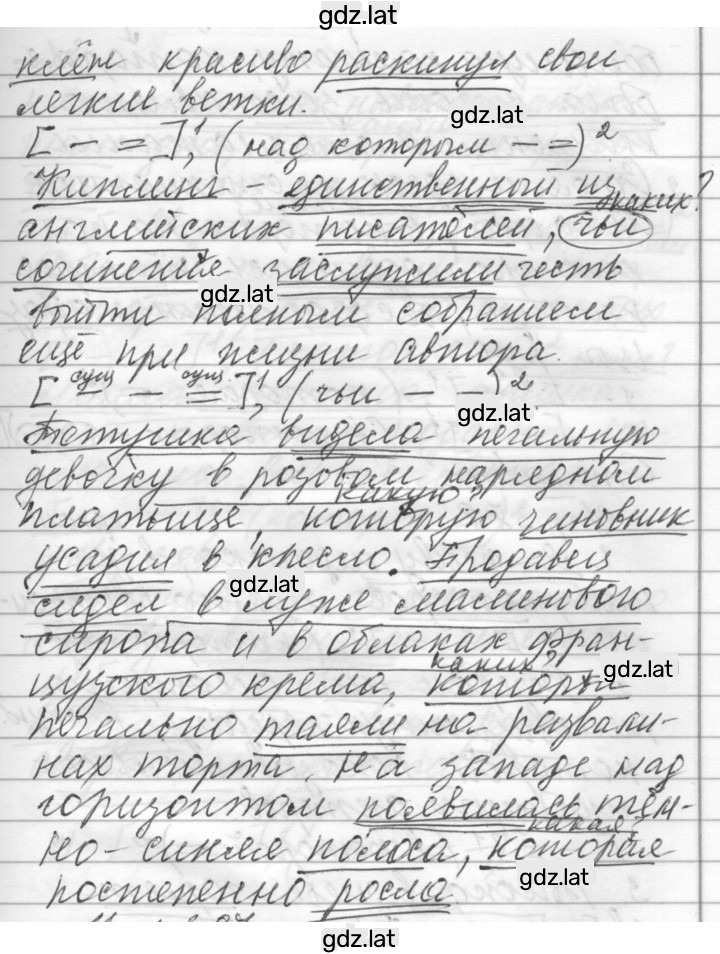 gdz.lat
клён красиво раскинул свои
легкие ветки.
gdz.lat
[ — = ]¹, (над которым — =)²
Киплинг – единственный из
каких?
английских писателей, чьи
сочинения заслужили честь
gdz.lat
выйти полным собранием
ещё при жизни автора.
сущ сущ
[ — – = ]¹, (чьи — –)²
gdz.lat
Тетушка видела печальную
девочку в розовом нарядном
какую?
платьице, которую чиновник
усадил в кресло. Продавец
gdz.lat
сидел в луже малинового
сиропа и в облаках фран-
каких?
gdz.lat
цузского крема, которые
печально таяли на развали-
нах торта. На западе над
горизонтом появилась тём-
какая?
но-синяя полоса, которая
gdz.lat
постепенно росла.
gdz.lat